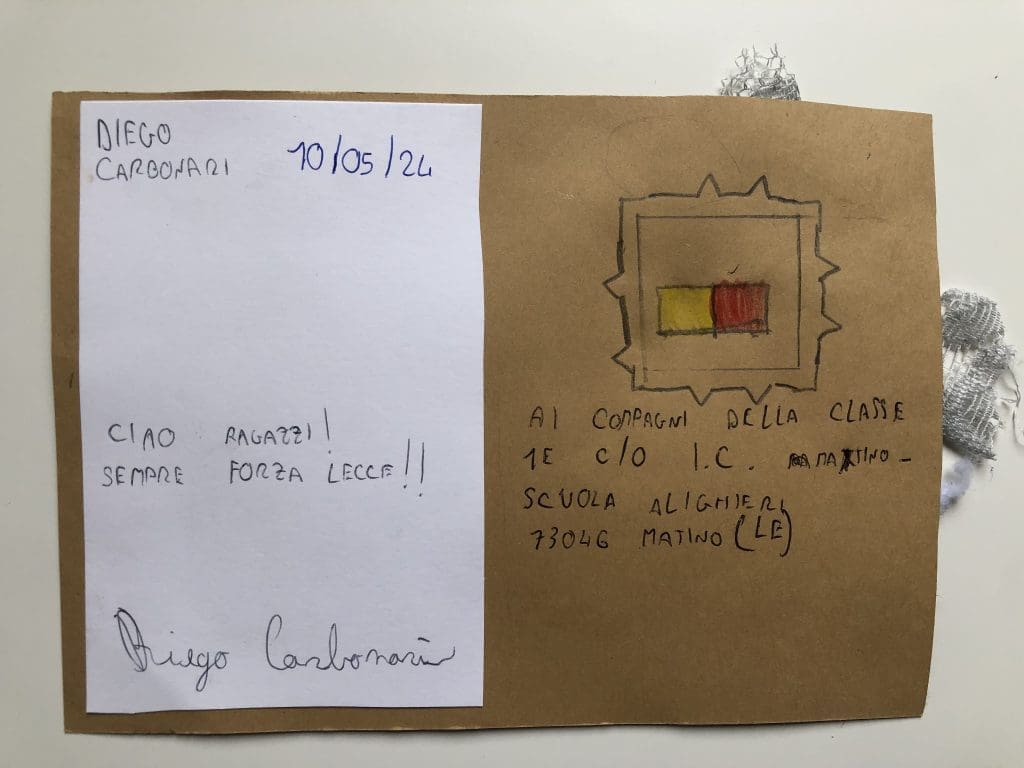 DIEGO
CARBONARI
10/05/24
CIAO RAGAZZI!
SEMPRE FORZA LECCE!!
Diego Carbonari
AI COMPAGNI DELLA CLASSE
1E C/O I.C.
SCUOLA ALIGHIERI
73046 MATINO (LE)